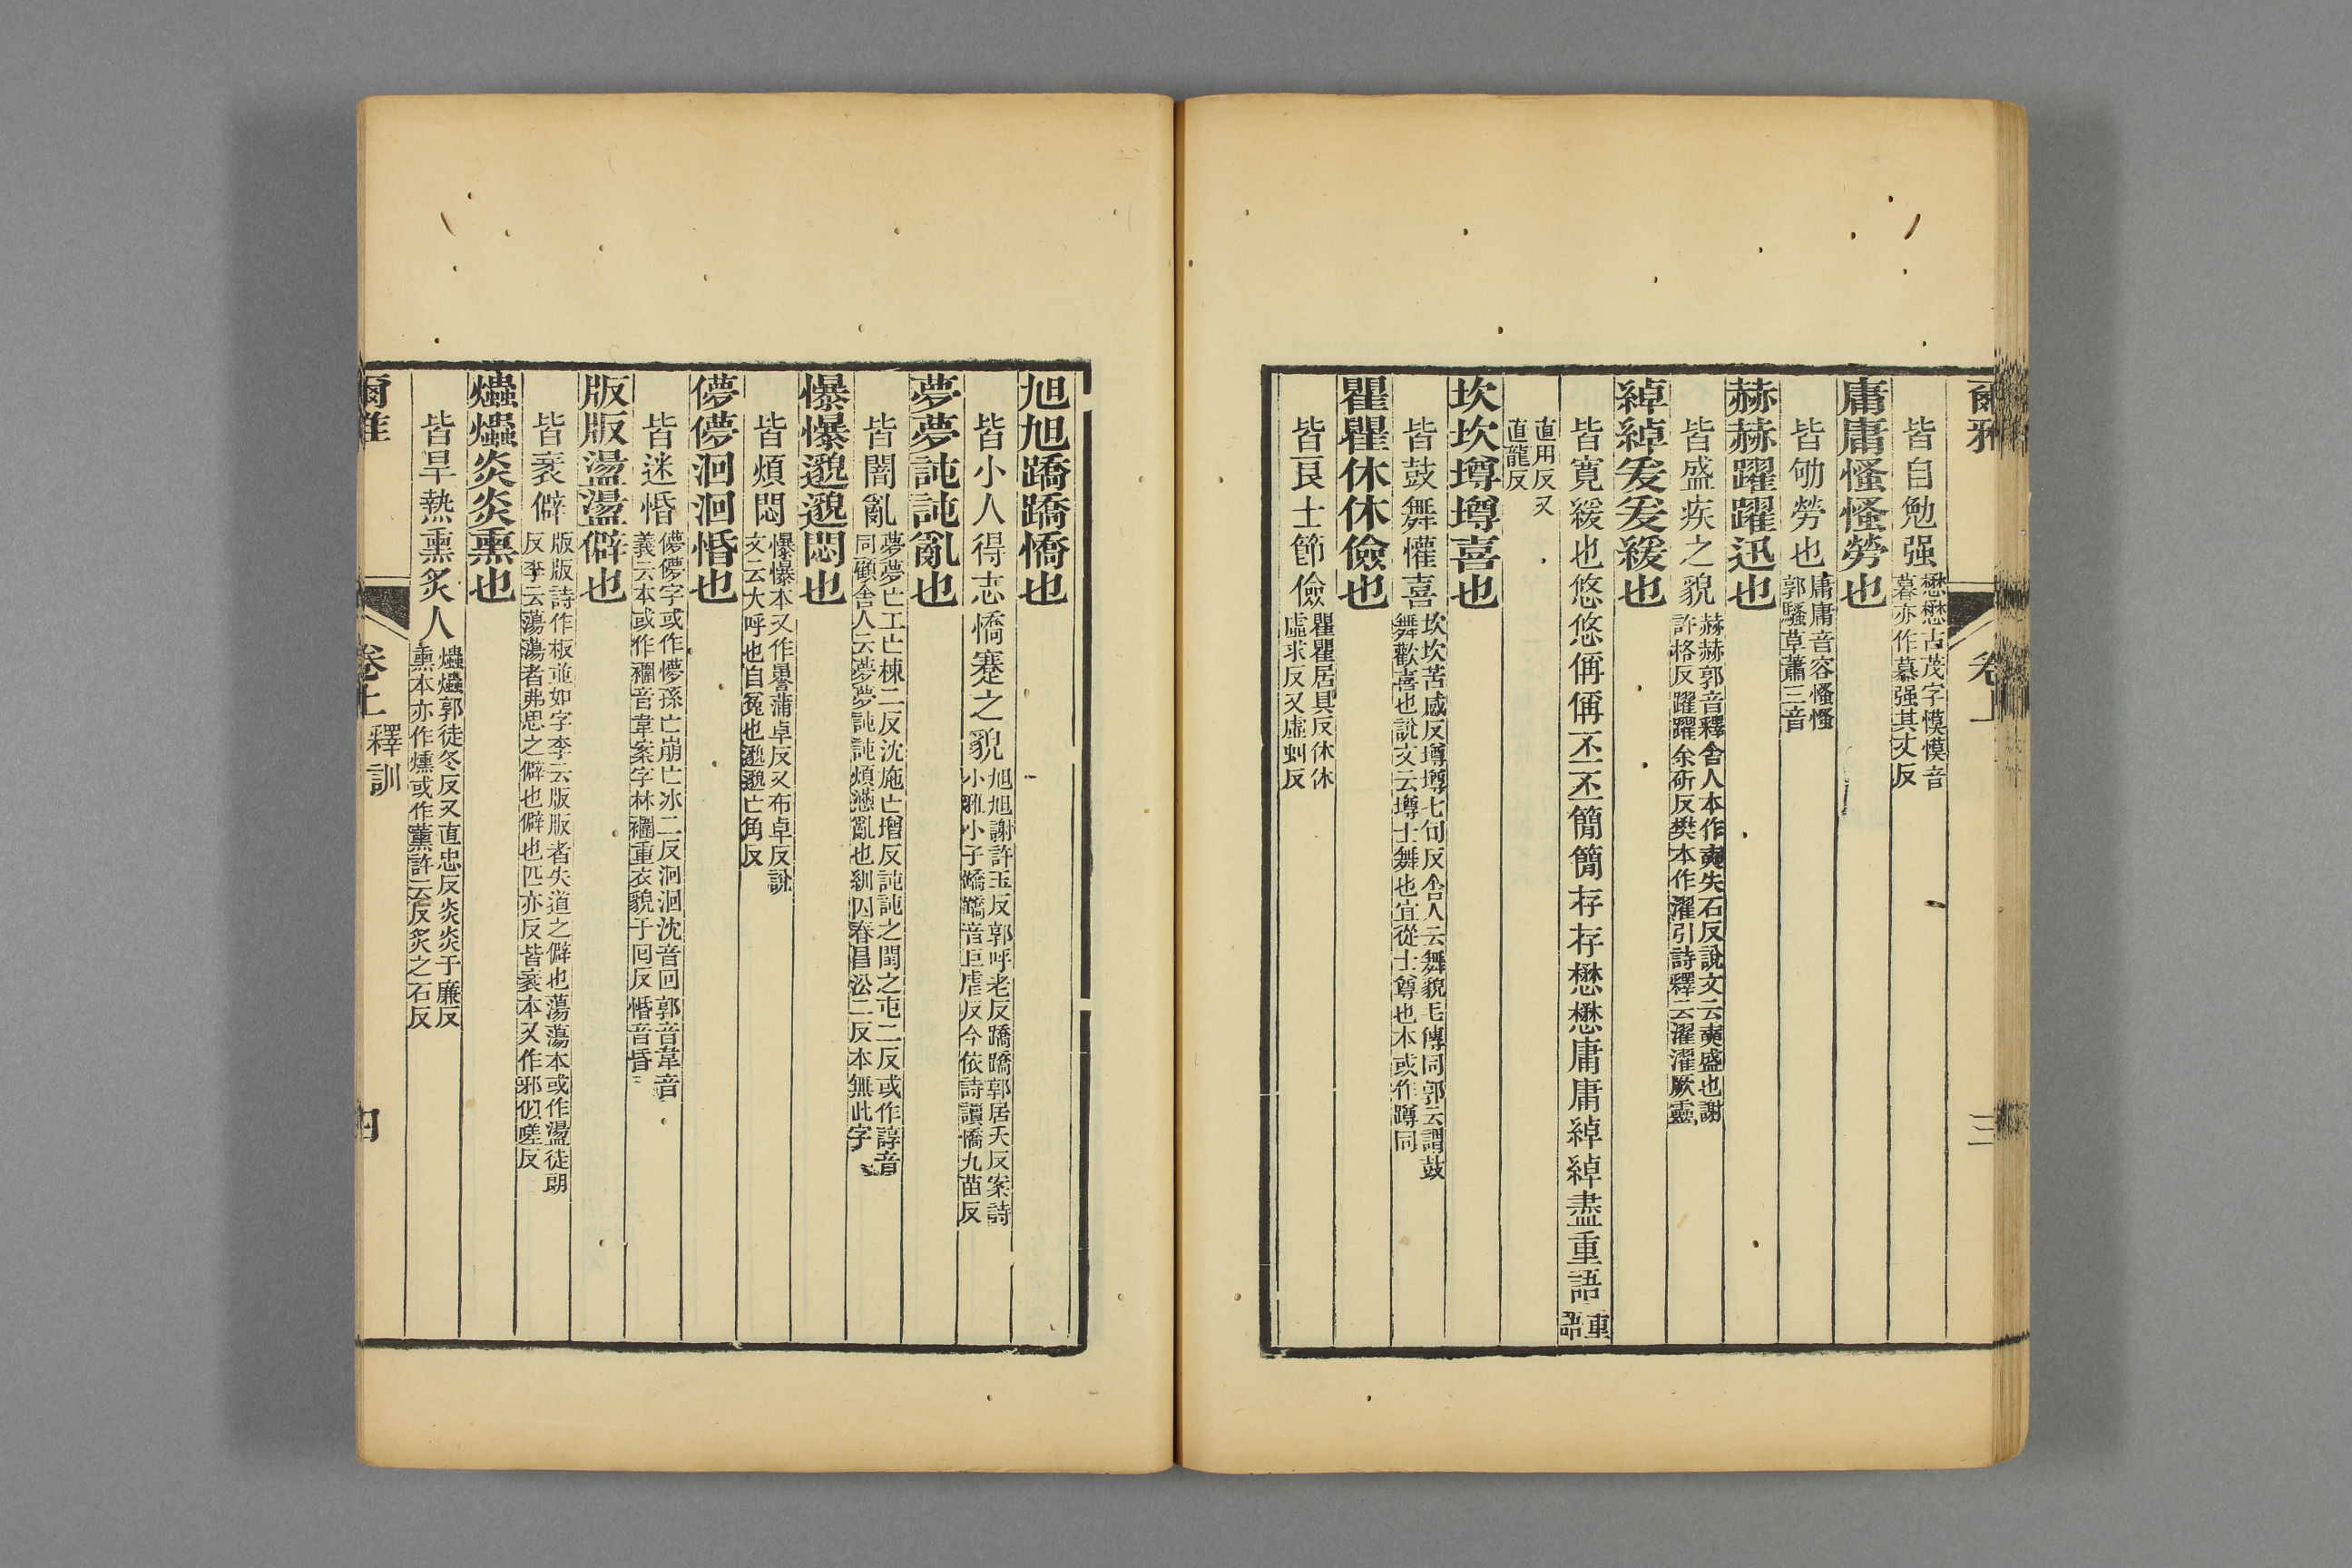 爾雅 卷上 三
皆自勉强 懋懋古茂字慔慔音
暮亦作慕强其丈反
庸庸慅慅勞也
皆劬勞也 庸庸音容慅慅
郭騷草蕭三音
赫赫躍躍迅也
皆盛疾之貌 赫赫郭音釋舍人本作奭失石反說文云奭盛也謝
許格反躍躍余斫反樊本作濯引詩釋云濯濯厥靈
綽綽爰爰緩也
皆寬緩也悠悠偁偁丕丕簡簡存存懋懋庸庸綽綽盡重語 重
語
直用反又
直龍反
坎坎墫墫喜也
皆鼓舞懽喜 坎坎苦感反墫墫七旬反舍人云舞貌毛傳同郭云謂鼓
舞歡喜也說文云墫士舞也宜從士尊也本或作蹲同
瞿瞿休休儉也
皆良士節儉 瞿瞿居具反休休
虛求反又虛虯反
旭旭蹻蹻憍也
皆小人得志憍蹇之貌 旭旭謝許玉反郭呼老反蹻蹻郭居夭反案詩
小雅小子蹻蹻音巨虐反今依詩讀憍九苗反
夢夢訰訰亂也
皆闇亂 夢夢亡工亡棟二反沈施亡增反訰訰之閏之屯二反或作諄音
同顧舍人云夢夢訰訰煩懣亂也紃囚春昌沿二反本無此字
爆爆邈邈悶也
皆煩悶 爆爆本又作㿺蒲卓反又布卓反說
文云大呼也自冤也邈邈亡角反
儚儚洄洄惛也
皆迷惛 儚儚字或作懜孫亡崩亡冰二反洄洄沈音回郭音韋音
義云本或作襛音韋案字林襛重衣貌于回反惛音昏
版版盪盪僻也
皆衺僻 版版詩作板並如字李云版版者失道之僻也蕩蕩本或作盪徒朗
反李云蕩蕩者弗思之僻也僻也匹亦反皆衺本又作邪似嗟反
爞爞炎炎熏也
皆旱熱熏炙人 爞爞郭徒冬反又直忠反炎炎于廉反
熏本亦作燻或作薰許云反炙之石反
爾雅 卷上 釋訓 四